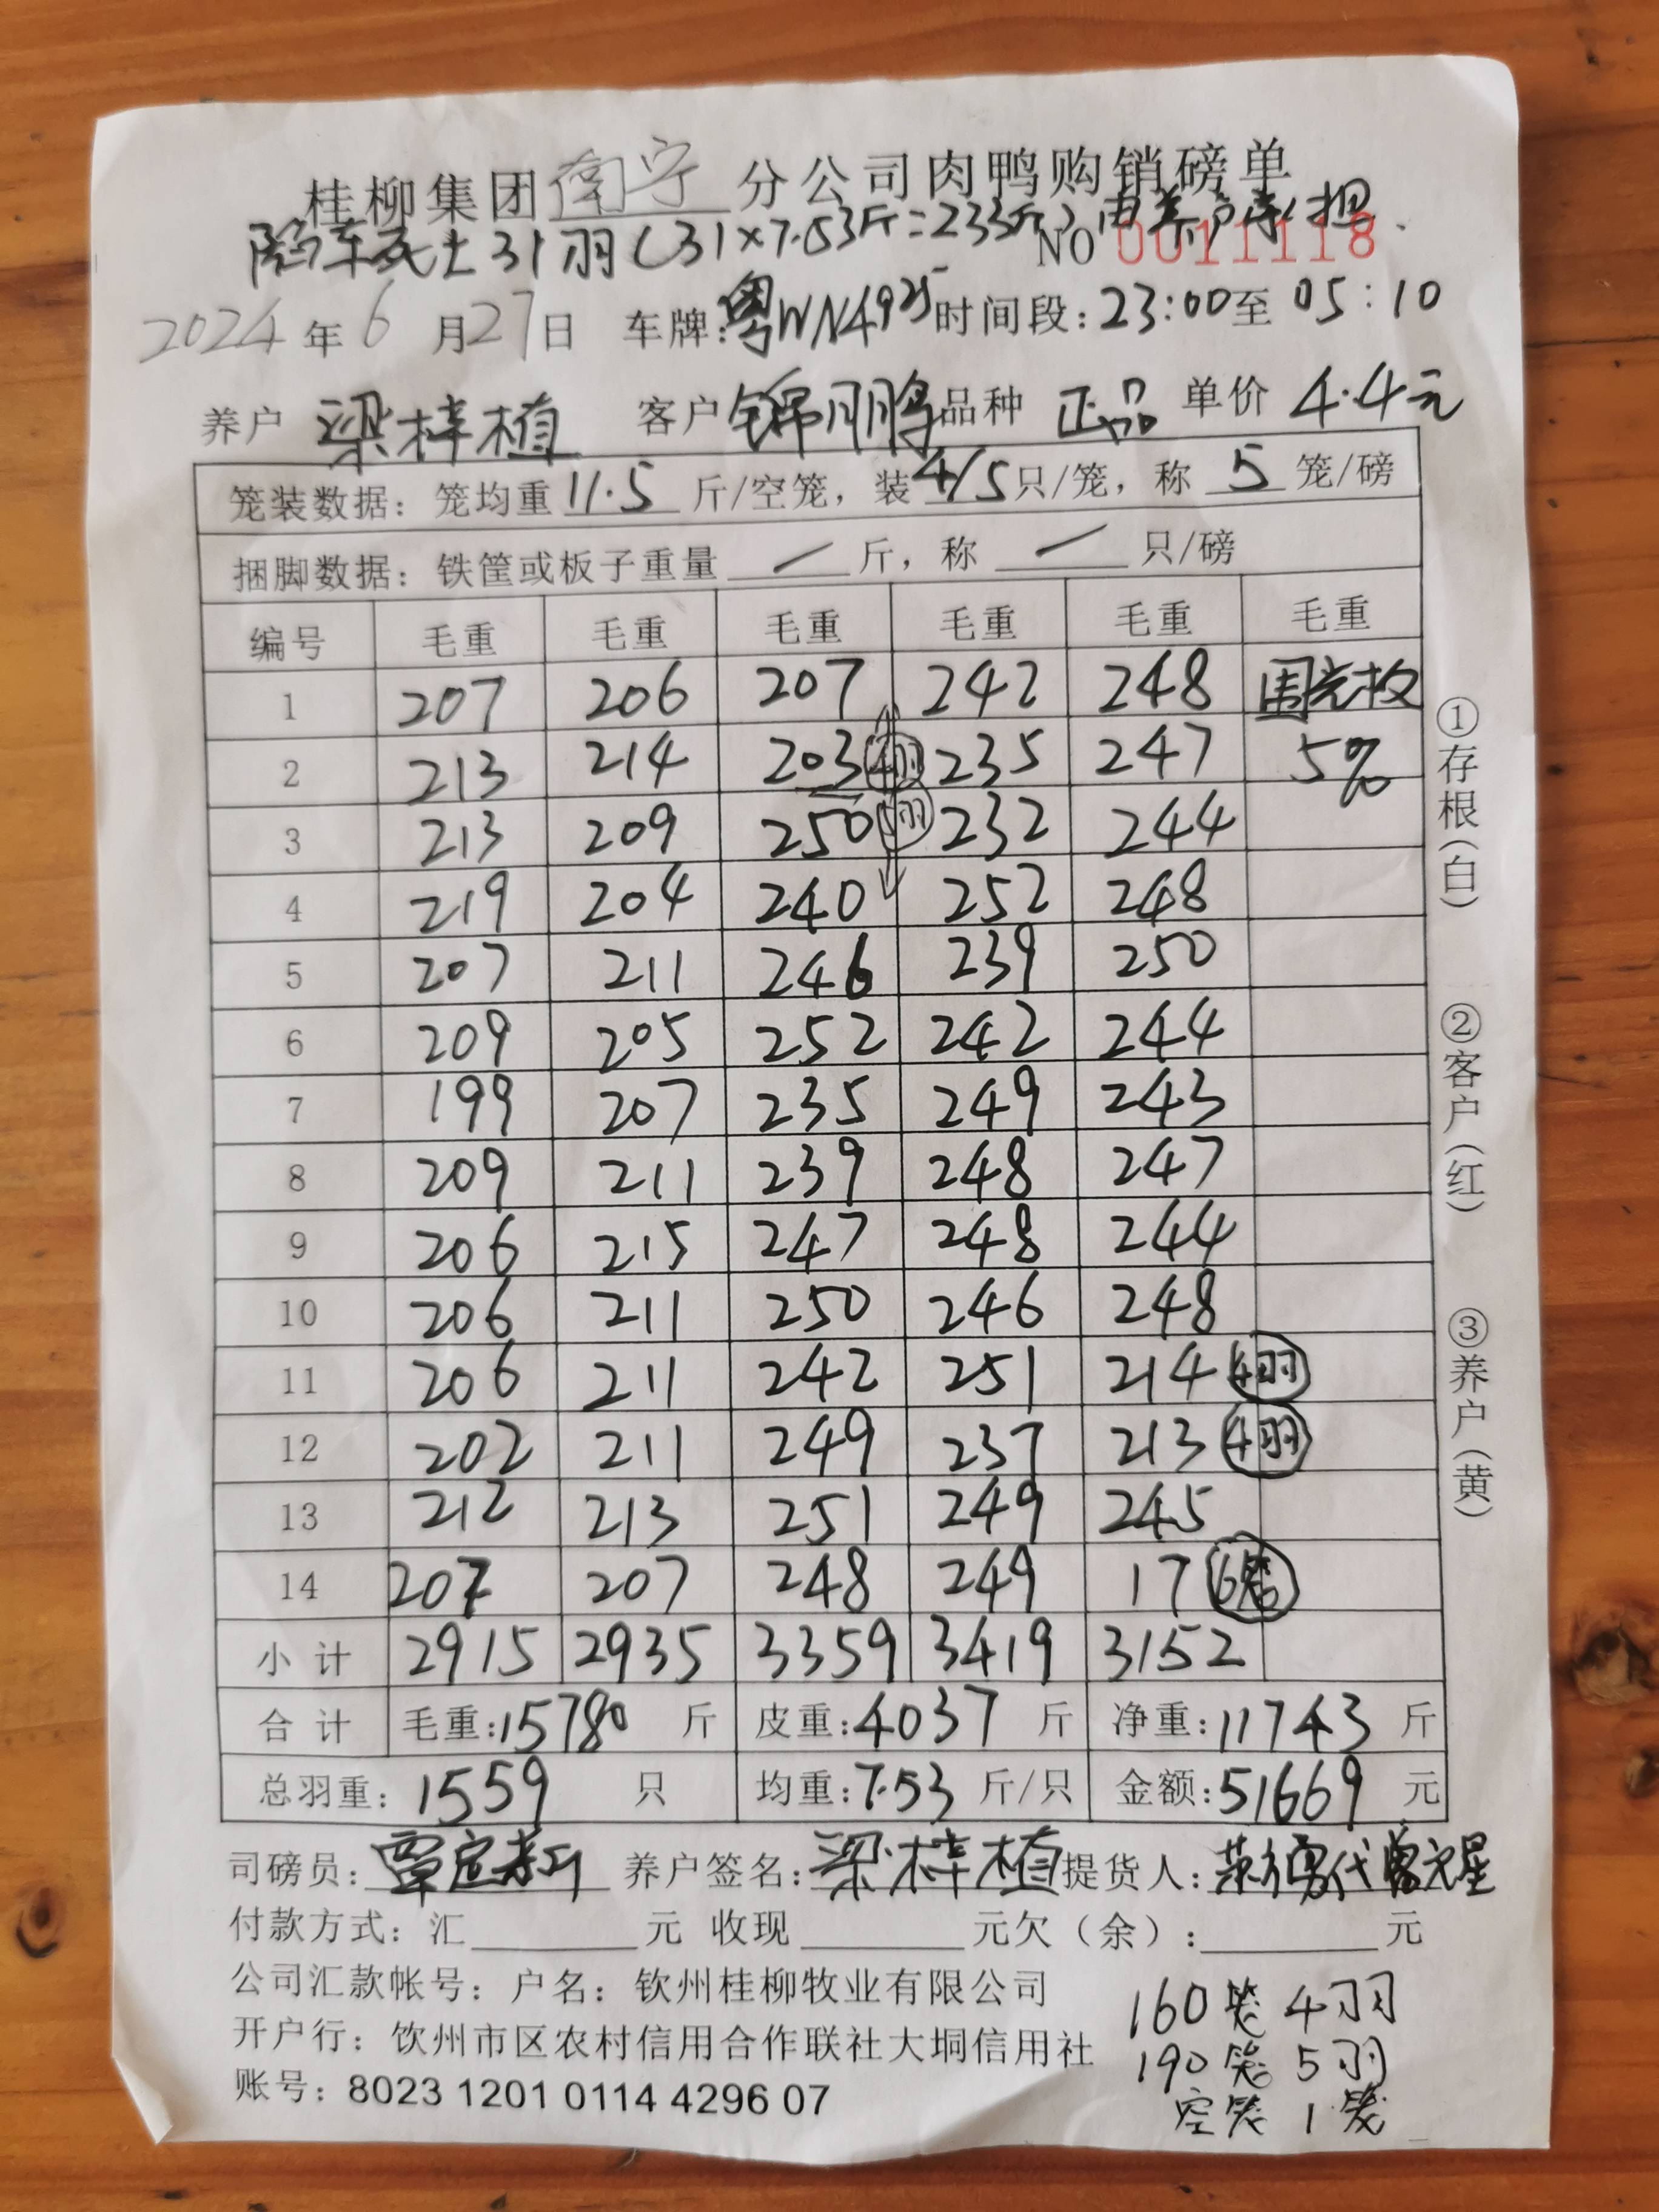 桂柳集团南宁分公司肉鸭购销磅单
随车死亡31羽(31×7.53斤=233斤)由养户承担.
NO 0011118
2024年6月27日 车牌:粤WN4925 时间段:23:00至05:10
养户 梁梓植 客户 锦鹏 品种 正品 单价 4.4元
笼装数据:笼均重 11.5 斤/空笼,装 4/5 只/笼,称 5 笼/磅
捆脚数据:铁筐或板子重量 / 斤,称 / 只/磅
编号 毛重 毛重 毛重 毛重 毛重 毛重
1 207 206 207 242 248
2 213 214 203 4羽 235 247 5%
3 213 209 250 5羽 232 244
4 219 204 240 252 248
5 207 211 246 239 250
6 209 205 252 242 244
7 199 207 235 249 243
8 209 211 239 248 247
9 206 215 247 248 244
10 206 211 250 246 248
11 206 211 242 251 214 4羽
12 202 211 249 237 213 4羽
13 212 213 251 249 245
14 207 207 248 249 17
小计 2915 2935 3359 3419 3152
合计 毛重:15780 斤 皮重:4037 斤 净重:11743 斤
总羽重:1559 只 均重:7.53 斤/只 金额:51669 元
司磅员: 养户签名:梁梓植 提货人:
付款方式:汇 元 收现 元欠(余): 元
公司汇款帐号:户名:钦州桂柳牧业有限公司
开户行:饮州市区农村信用合作联社大垌信用社
账号:8023 1201 0114 4296 07
160笼 4羽
190笼 5羽
空笼 1笼
①存根(白)
②客户(红)
③养户(黄)